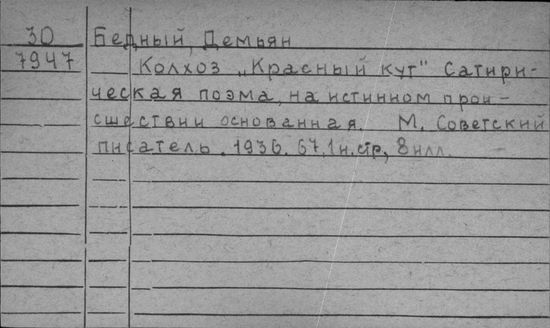 30 Бедный, Демьян
7947 Колхоз „Красный кут" Сатири-
ческая поэма, на истинном прои-
сшествии основанная. М. Советский
писатель. 1936. 67,1н.стр, 8 илл.